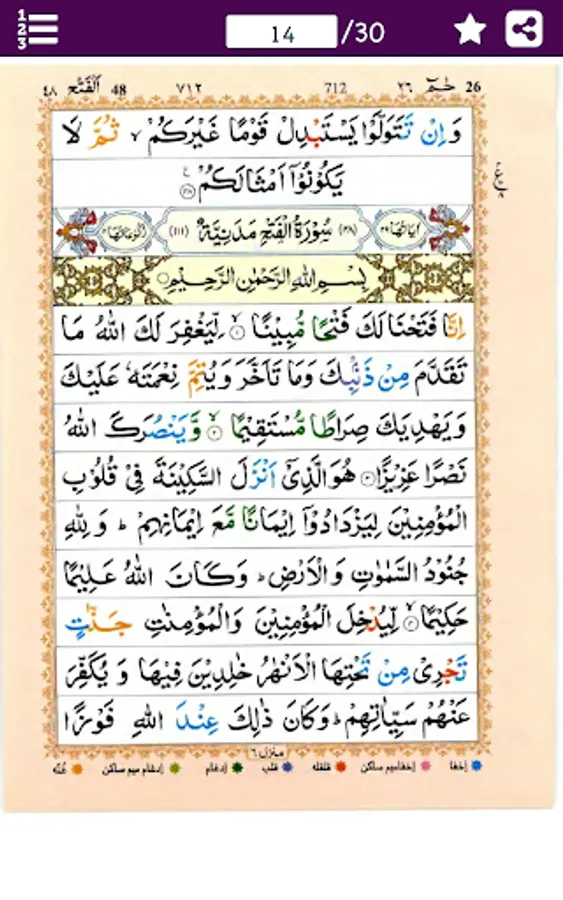 1 2 3
14 /30
٤٨ اَلْفَتْح 48 ٧١٢ 712 حٰمٓ ٢٦ 26
وَاِنْ تَتَوَلَّوْا يَسْتَبْدِلْ قَوْمًا غَيْرَكُمْ ۙ ثُمَّ لَا
يَكُوْنُوْۤا اَمْثَالَكُمْ ﴿٣٨﴾
اٰيَاتُهَا ٢٩ (٤٨) سُوْرَةُ الْفَتْحِ مَدَنِيَّةٌ (١١١) رُكُوْعَاتُهَا ٤
بِسْمِ اللّٰهِ الرَّحْمٰنِ الرَّحِيْمِ
اِنَّا فَتَحْنَا لَكَ فَتْحًا مُّبِيْنًا ۙ﴿١﴾ لِّيَغْفِرَ لَكَ اللّٰهُ مَا
تَقَدَّمَ مِنْ ذَنْۢبِكَ وَمَا تَاَخَّرَ وَيُتِمَّ نِعْمَتَهٗ عَلَيْكَ
وَيَهْدِيَكَ صِرَاطًا مُّسْتَقِيْمًا ۙ﴿٢﴾ وَّيَنْصُرَكَ اللّٰهُ
نَصْرًا عَزِيْزًا ﴿٣﴾ هُوَ الَّذِيْۤ اَنْزَلَ السَّكِيْنَةَ فِيْ قُلُوْبِ
الْمُؤْمِنِيْنَ لِيَزْدَادُوْۤا اِيْمَانًا مَّعَ اِيْمَانِهِمْ ؕ وَلِلّٰهِ
جُنُوْدُ السَّمٰوٰتِ وَالْاَرْضِ ؕ وَكَانَ اللّٰهُ عَلِيْمًا
حَكِيْمًا ۙ﴿٤﴾ لِّيُدْخِلَ الْمُؤْمِنِيْنَ وَالْمُؤْمِنٰتِ جَنّٰتٍ
تَجْرِيْ مِنْ تَحْتِهَا الْاَنْهٰرُ خٰلِدِيْنَ فِيْهَا وَيُكَفِّرَ
عَنْهُمْ سَيِّاٰتِهِمْ ؕ وَكَانَ ذٰلِكَ عِنْدَ اللّٰهِ فَوْزًا
منزل ٦
إخفا إخفامیم ساكن قلقله قلب إدغام إدغام ميم ساكن غُنّه